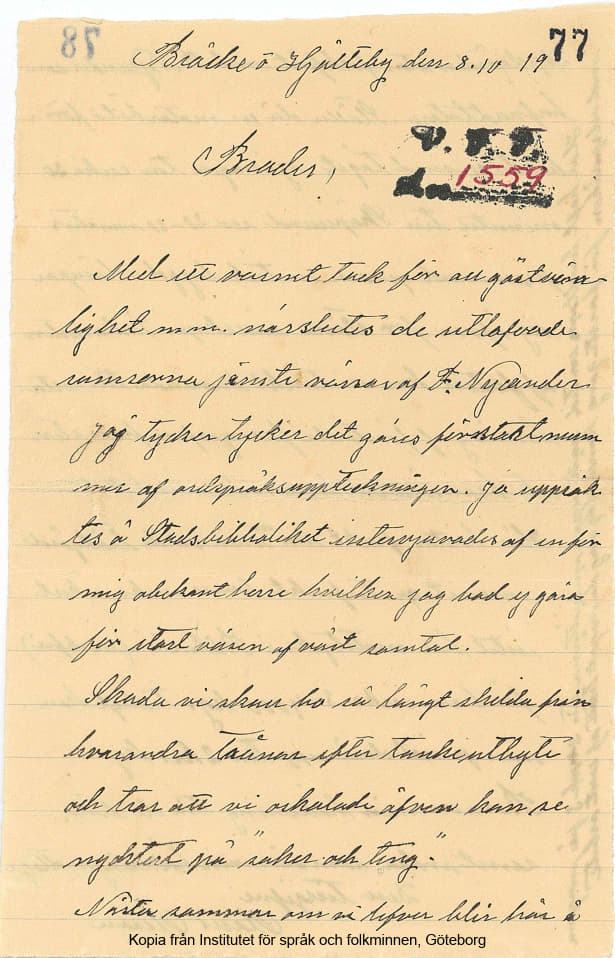 78
77
Bräcke ö Hjälteby den 8.10 19
V. F. F.
dnr 1559
Broder,
Med ett varmt tack för all gästvän-
lighet m.m. närslutes de utlofvade
ramsorna jämte vissor af F. Nycander
Jag tycker tycker det göres för stort num
mer af ordspråksuppteckningen. Ja uppsök
tes å Stadsbibliotiket intervjuvades af en för
mig obekant herre hvilken jag bad ej göra
för stort väsen af vårt samtal.
Skada vi skall bo så långt skilda från
hvarandra Trånar efter tankeutbyte
och tror att vi oskolade äfven kan se
nycktert på "saker och ting".
Nästa sommar om vi lefver blir här å
Kopia från Institutet för språk och folkminnen, Göteborg